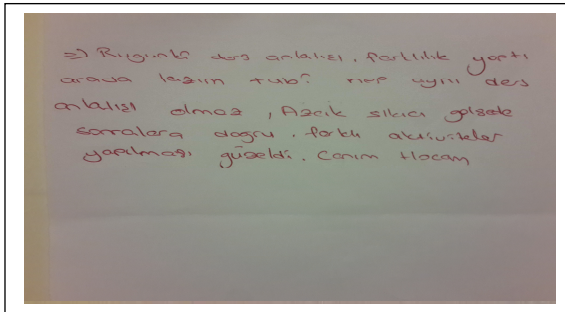 2) Bugünkü ders anlatışı, farklılık yarattı
arada lazım tabi? hep aynı ders
anlatışı olmaz, Azcık sıkıcı gelsede
sonralara doğru, farklı aktiviteler
yapılması güzeldi. Canım Hocam